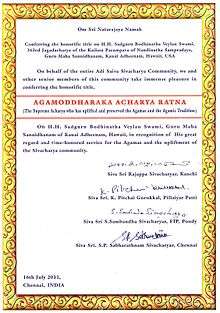 Om Sri Natarajaya Namah
Conferring the honorific title on H.H. Sadguru Bodhinatha Veylan Swami,
163rd Jagadacharya of the Kailasa Parampara of Nandinatha Sampradaya,
Guru Maha Sannidhanam, Kauai Aadheenam, Hawaii, USA
On behalf of the entire Adi Saiva Sivacharya Community, we and
other senior members of this community take immense pleasure in
conferring the honorific title,
AGAMODDHARAKA ACHARYA RATNA
(The Supreme Acharya who has uplifted and preserved the Agamas and the Agamic Tradition)
On H.H. Sadguru Bodhinatha Veylan Swami, Guru Maha
Sannidhanam of Kauai Adheenam, Hawaii, in recognition of His great
regard and time-honored service for the Agamas and the upliftment of
the Sivacharya community.
Siva Sri Rajappa Sivacharyar, Kanchi
K. Pitchai
Siva Sri. K. Pitchai Gurukkal, Pillaiyar Patti
Siva Sri. S.Sambandha Sivacharyar, FIP, Pondy
Siva Sri. S.P. Sabharathnam Sivacharyar, Chennai
16th July 2011,
Chennai, INDIA